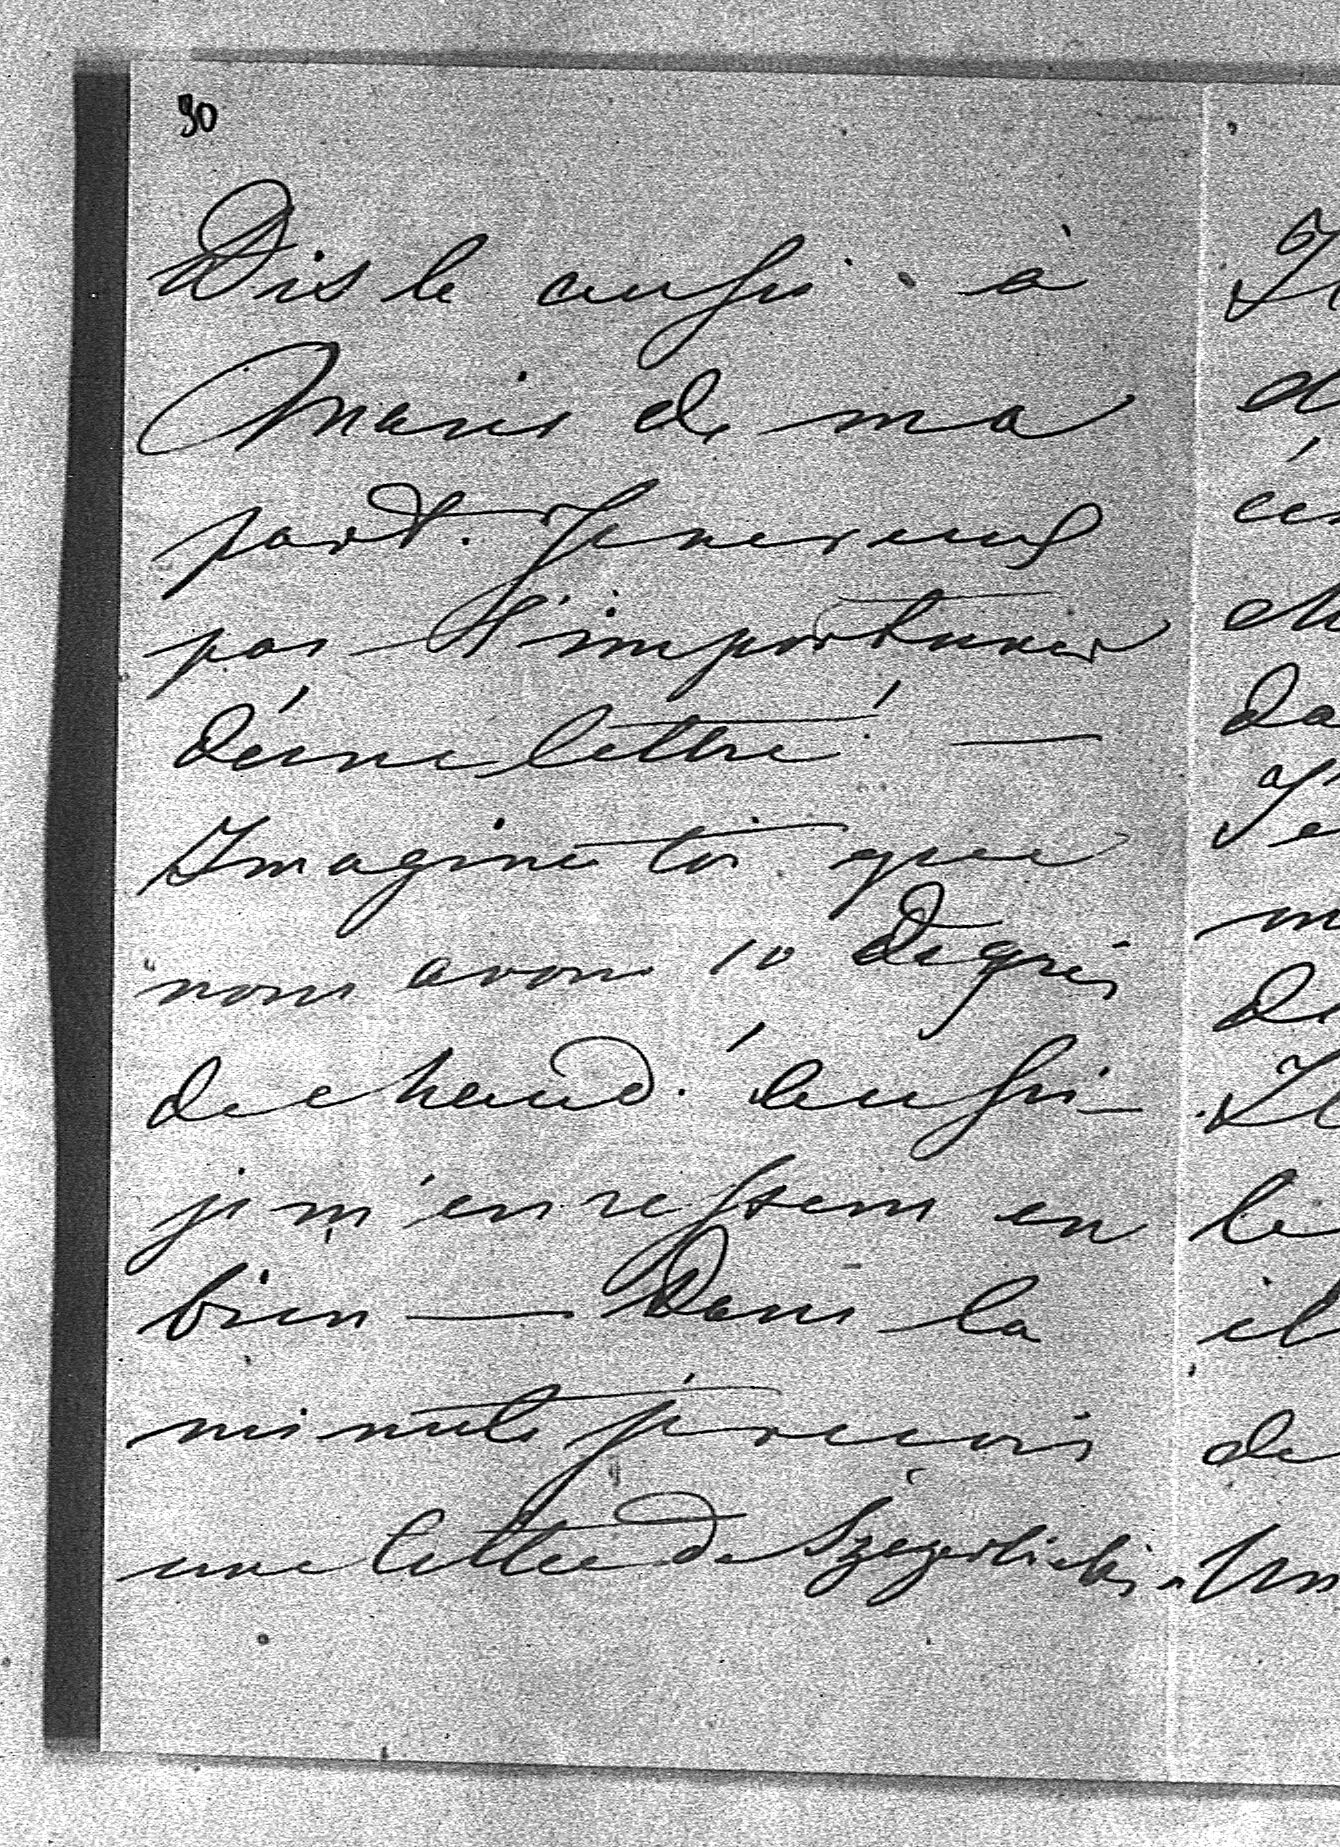 90
Dis le aussi à
Marie de ma
part. Je ne veux
pas t'importuner
d'une lettre! —
Imagine toi que
nous avons 10 degrés
de chaud. Aussi
je m'en ressens en
bien — Dans la
minute je reçois
une lettre de